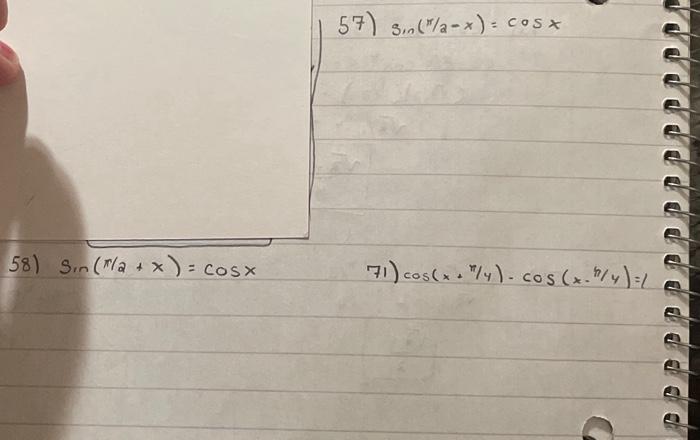 57) sin(π/2 - x) = cosx
58) sin(π/2 + x) = cosx
71) cos(x + π/4) - cos(x - π/4) = 1